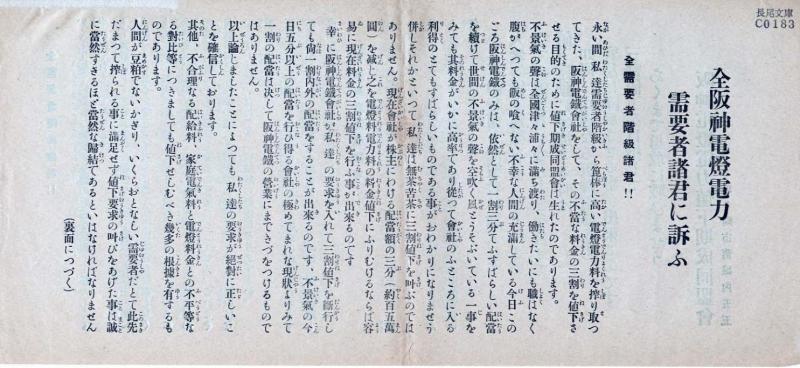 長尾文庫
C0183
全阪神電燈電力
需要者諸君に訴ふ
全需要者階級諸君!!
永い間 私達需要者階級から篦棒に高い電燈電力料を搾り取つ
てきた、阪神電鐵會社をして、その不當な料金の三割を値下さ
せる目的のために値下期成同盟會は生れたのであります。
不景氣の聲は全國津々浦々に滿ち渡り、働きたいにも職はなく
腹がへつても飯の喰へない不幸な人間の充滿してゐる今日この
ころ阪神電鐵のみは、依然として一割三分てふすばらしい配當
を續けて世間の不景氣の聲を空吹く風とうそぶいてゐる一事を
みても其料金がいかに高率であり從つて會社のふところに入る
利得のとてもすばらしいものである事がおわかりになりませう
併しそれかといつて 私達は無茶苦茶に三割値下を叫ぶのでは
ありません。現在會社が株主にわける配當額の三分(約百五萬
圓)を減じ之を電燈料電力料の料金値下にふりむけるならば容
易に現在料金の三割値下を行ふ事が出來るのです
幸に阪神電鐵會社が 私達の要求を入れて三割値下を斷行し
ても尙一割内外の配當をすることが出來るのです、不景氣の今
日五分以上の配當を行ひ得る會社の極めてまれな現狀よりみて
一割の配當は決して阪神電鐵の營業にまできづをつけるもので
はありません。
以上論じましたことによつても 私達の要求が絶對に正しいこ
とを確信しております。
其他、不合理なる配給料、家庭電氣料と電燈料金との不平等な
る對比等につきましても値下せしむべき幾多の根據を有するも
のであります。
人間が豆粕でないかぎり、いくらおとなしい需要者だとて此先
だまつて搾られる事に滿足せず値下要求の叫びをあげた事は誠
に當然すぎるほど當然な歸結であるといはなければなりません
(裏面につづく)